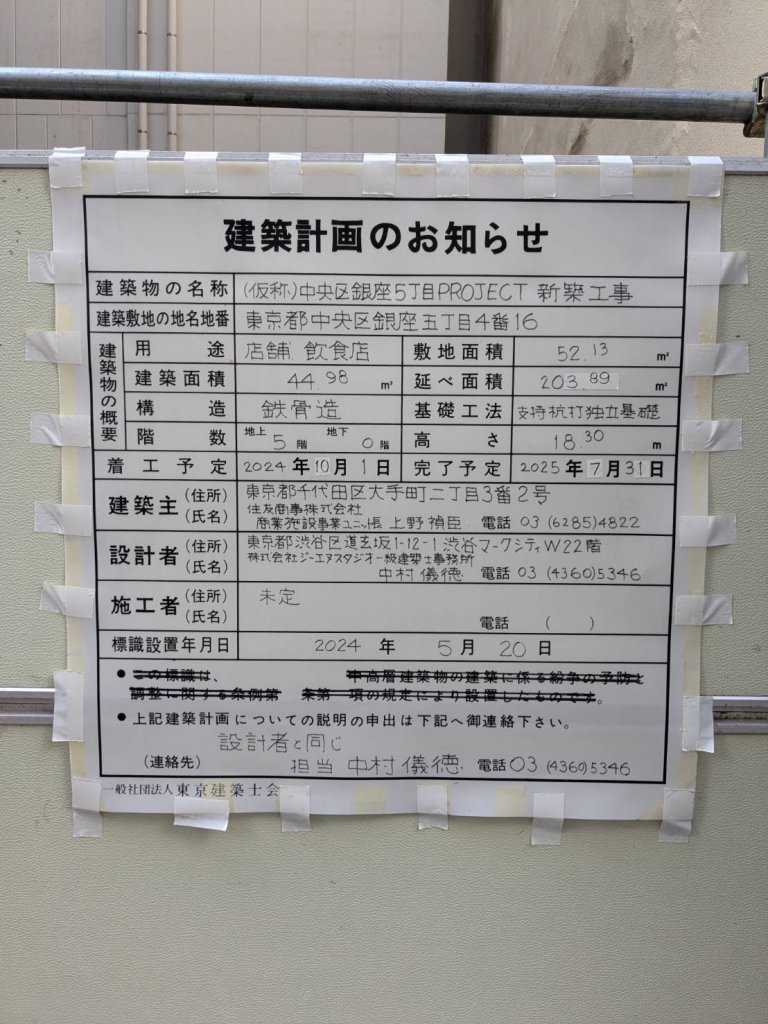 建築計画のお知らせ
建築物の名称 (仮称)中央区銀座5丁目PROJECT 新築工事
建築敷地の地名地番 東京都中央区銀座五丁目4番16
建築物の概要
用途 店舗 飲食店 敷地面積 52.13 m²
建築面積 44.98 m² 延べ面積 203.89 m²
構造 鉄骨造 基礎工法 支持杭打独立基礎
階数 地上 5 階 地下 0 階 高さ 18.30 m
着工予定 2024 年 10 月 1 日 完了予定 2025 年 7 月 31 日
建築主 (住所) 東京都千代田区大手町二丁目3番2号
住友商事株式会社
(氏名) 商業施設事業ユニット長 上野禎臣 電話 03 (6285) 4822
設計者 (住所) 東京都渋谷区道玄坂1-12-1 渋谷マークシティW22階
株式会社ジーエヌスタジオ一級建築士事務所
(氏名) 中村儀徳 電話 03 (4360) 5346
施工者 (住所) 未定
(氏名) 電話 ( )
標識設置年月日 2024 年 5 月 20 日
●この標識は、 中高層建築物の建築に係る紛争の予防と
調整に関する条例第 条第 項の規定により設置したものです。
●上記建築計画についての説明の申出は下記へ御連絡下さい。
設計者と同じ
(連絡先) 担当 中村儀徳 電話 03 (4360) 5346
一般社団法人 東京建築士会